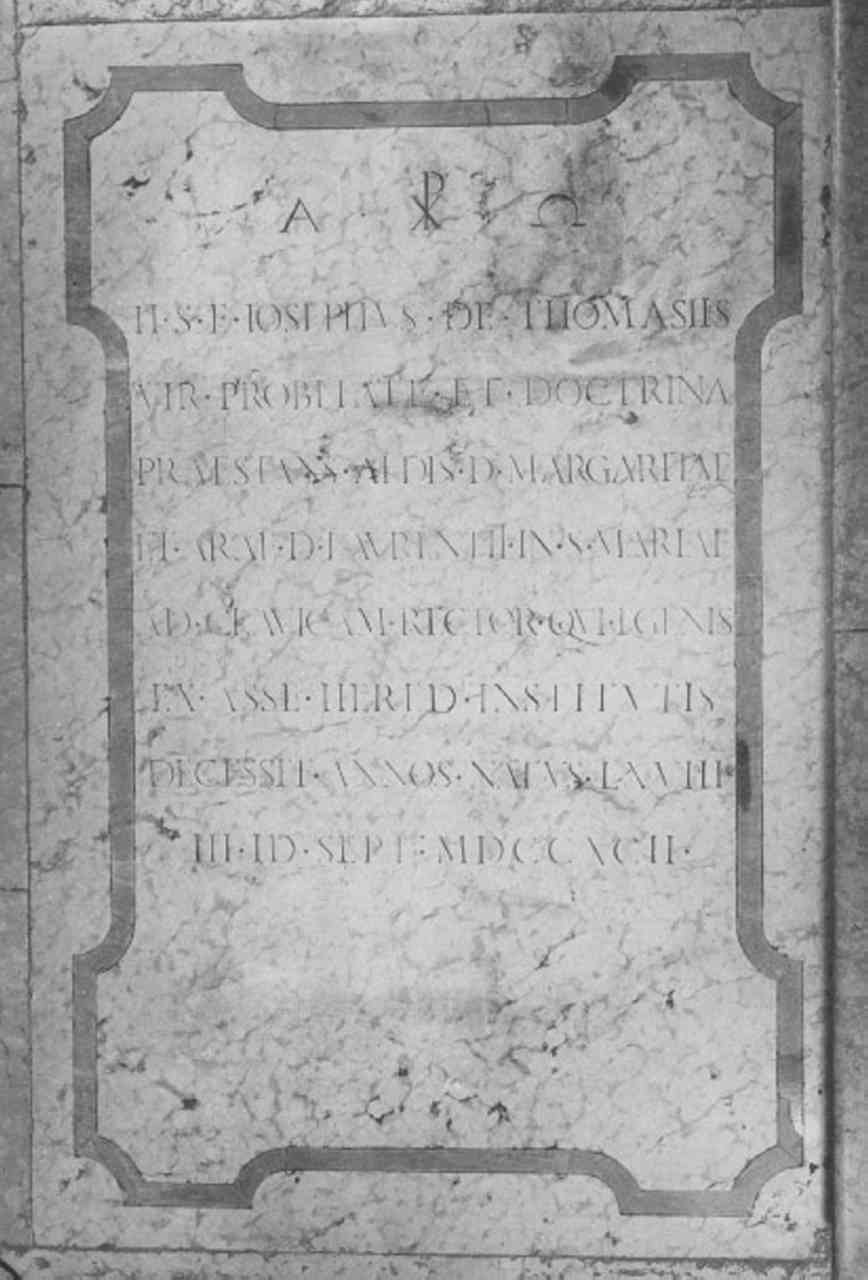 Α ☧ Ω
H·S·E·IOSEPHVS·DE·THOMASIIS
VIR·PROBITATE·ET·DOCTRINA
PRAESTANS·AEDIS·D·MARGARITAE
ET·ARAE·D·LAVRENTII·IN·S·MARIAE
AD·CLAVICAM·RECTOR·QVI·EGENIS
EX·ASSE·HERED·INSTITVTIS
DECESSIT·ANNOS·NATVS·LXVIII
III·ID·SEPT·MDCCXCII·